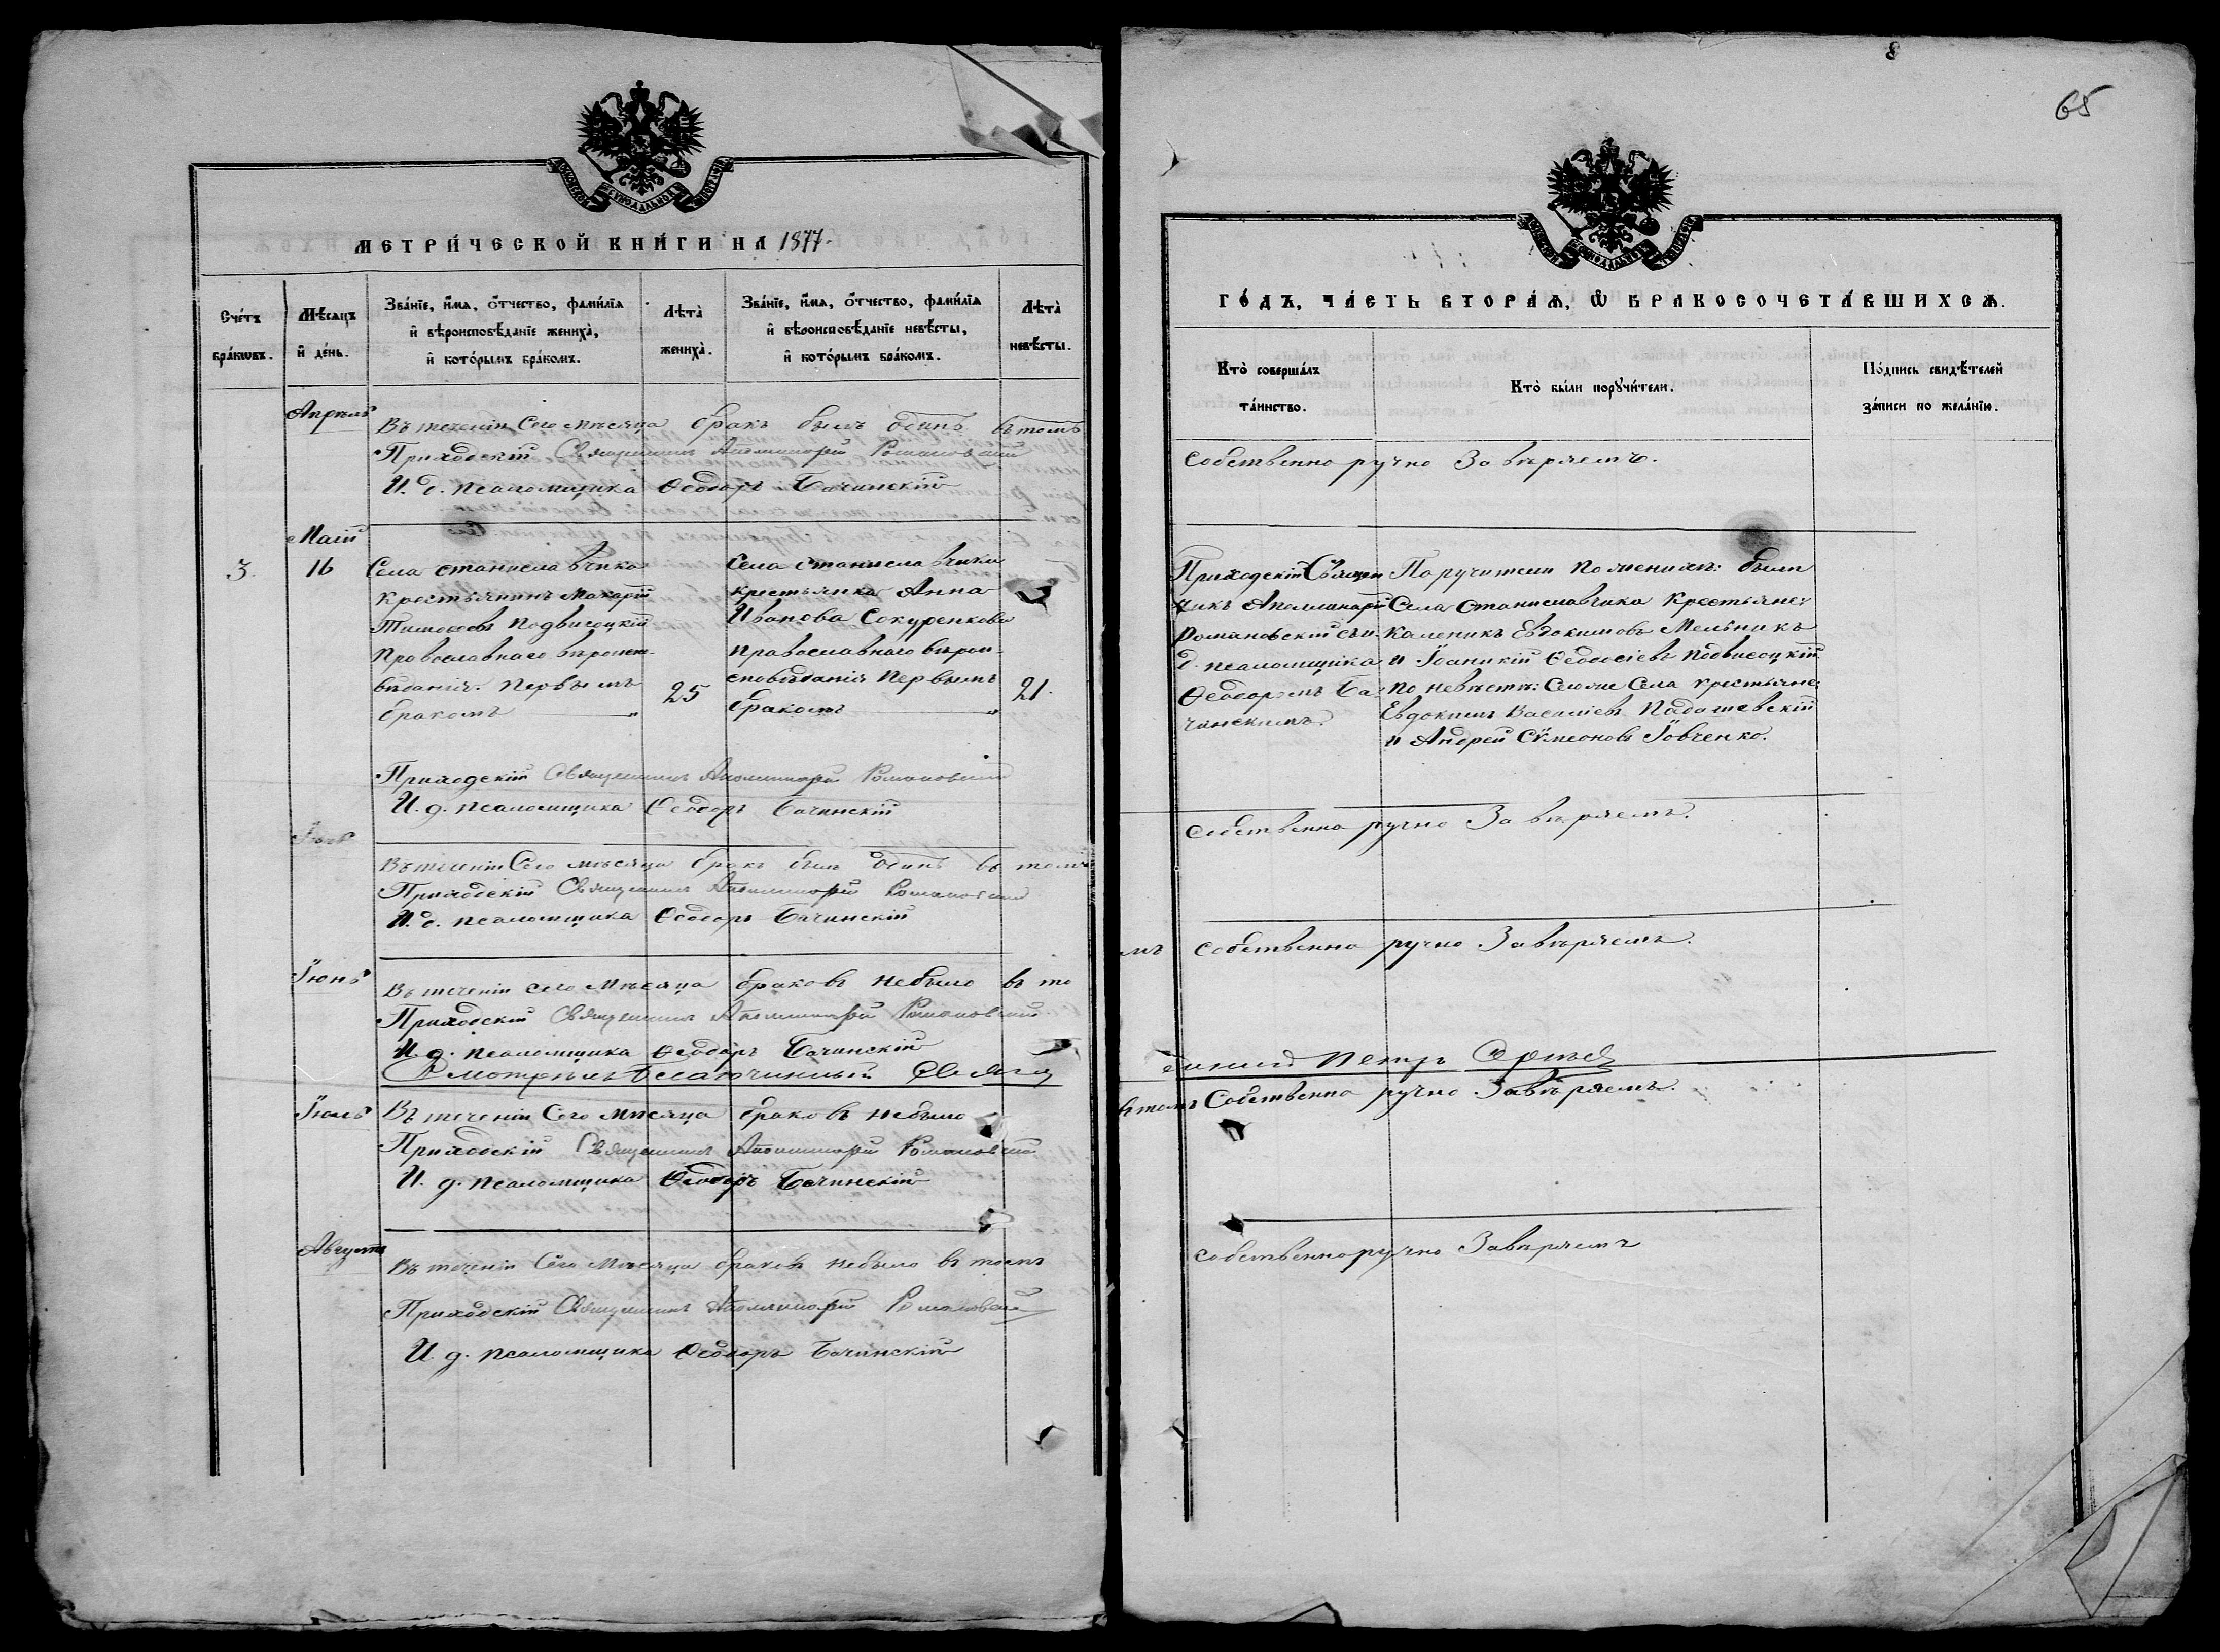 8
65
МЕТРИ́ЧЕСКОЙ КНИ́ГИ НА 1877.
Сче́тъ бра́кωвъ.
Мѣ́сяцъ и҆ де́нь.
Зва́нїе, и҆́мя, ѻ҆́тчество, фами́лїя
и҆ вѣроисповѣ́данїе жениха̀,
и҆ кото́рымъ бра́комъ.
Лѣта̀ жениха̀.
Зва́нїе, и҆́мя, ѻ҆́тчество, фами́лїя
и҆ вѣроисповѣ́данїе невѣ́сты,
и҆ кото́рымъ бра́комъ.
Лѣта̀ невѣ́сты.
Апрѣль
Въ теченіи Сего мѣсяца бракъ былъ одинъ въ томъ
Приходскій Священникъ Аполлинарій Романовскій
И. д. псаломщика Ѳеодоръ Бачинскій
Маій
3. 16
Села Станиславчика
Крестьянинъ Макарій
Тимоѳеевъ Подвисоцкій
Православнаго вѣроиспо-
вѣданія. Первымъ
бракомъ
25
Села Станиславчика
крестьянка Анна
Иванова Сокуренкова
православнаго вѣрои-
сповѣданія Первымъ
бракомъ
21.
Приходскій Священникъ Аполлинарій Романовскій
И. д. псаломщика Ѳеодоръ Бачинскій
Въ теченіи Сего мѣсяца бракъ былъ одинъ въ томъ
Приходскій Священникъ Аполлинарій Романовскій
И. д. псаломщика Ѳеодоръ Бачинскій
Іюнь
Въ теченіи сего Мѣсяца браковъ небыло въ то
Приходскій Священникъ Аполлинарій Романовскій
И. д. псаломщика Ѳеодоръ Бачинскій
Смотрѣлъ Благочинный
Іюль
Въ теченіи Сего мѣсяца браковъ небыло
Приходскій Священникъ Аполлинарій Романовскій
И. д. псаломщика Ѳеодоръ Бачинскій
Августъ
Въ теченіи Сего Мѣсяца браковъ небыло въ томъ
Приходскій Священникъ Аполлинарій Романовскій
И. д. псаломщика Ѳеодоръ Бачинскій
ГО́ДЪ, ЧА́СТЬ ВТОРА́Я, Ѡ҆ БРАКОСОЧЕТА́ВШИХСЯ.
Кто̀ соверша́лъ
та́инство.
Кто̀ бы́ли порꙋчи́тели.
По́дпись свидѣ́телей
за́писи по жела́нїю.
Собственноручно Завѣряемъ.
Приходскій Священ
никъ Аполлинарій
Романовскій съ и.
д. псаломщика
Ѳеодоромъ Ба-
чинскимъ.
Поручители По женихѣ: были
Села Станиславчика Крестьяне:
Каленикъ Евдокимовъ Мельникъ
и Іоаникій Ѳеодосіевъ Подвисоцкій
По невѣстѣ: Сего же Села крестьяне:
Евдокимъ Василіевъ Подашевскій
и Андрей Сѵмеоновъ Іовченко.
Собственно ручно Завѣряемъ.
мъ Собственно ручно Завѣряемъ.
Петръ
въ томъ Собственно ручно Завѣряемъ.
Собственноручно Завѣряемъ